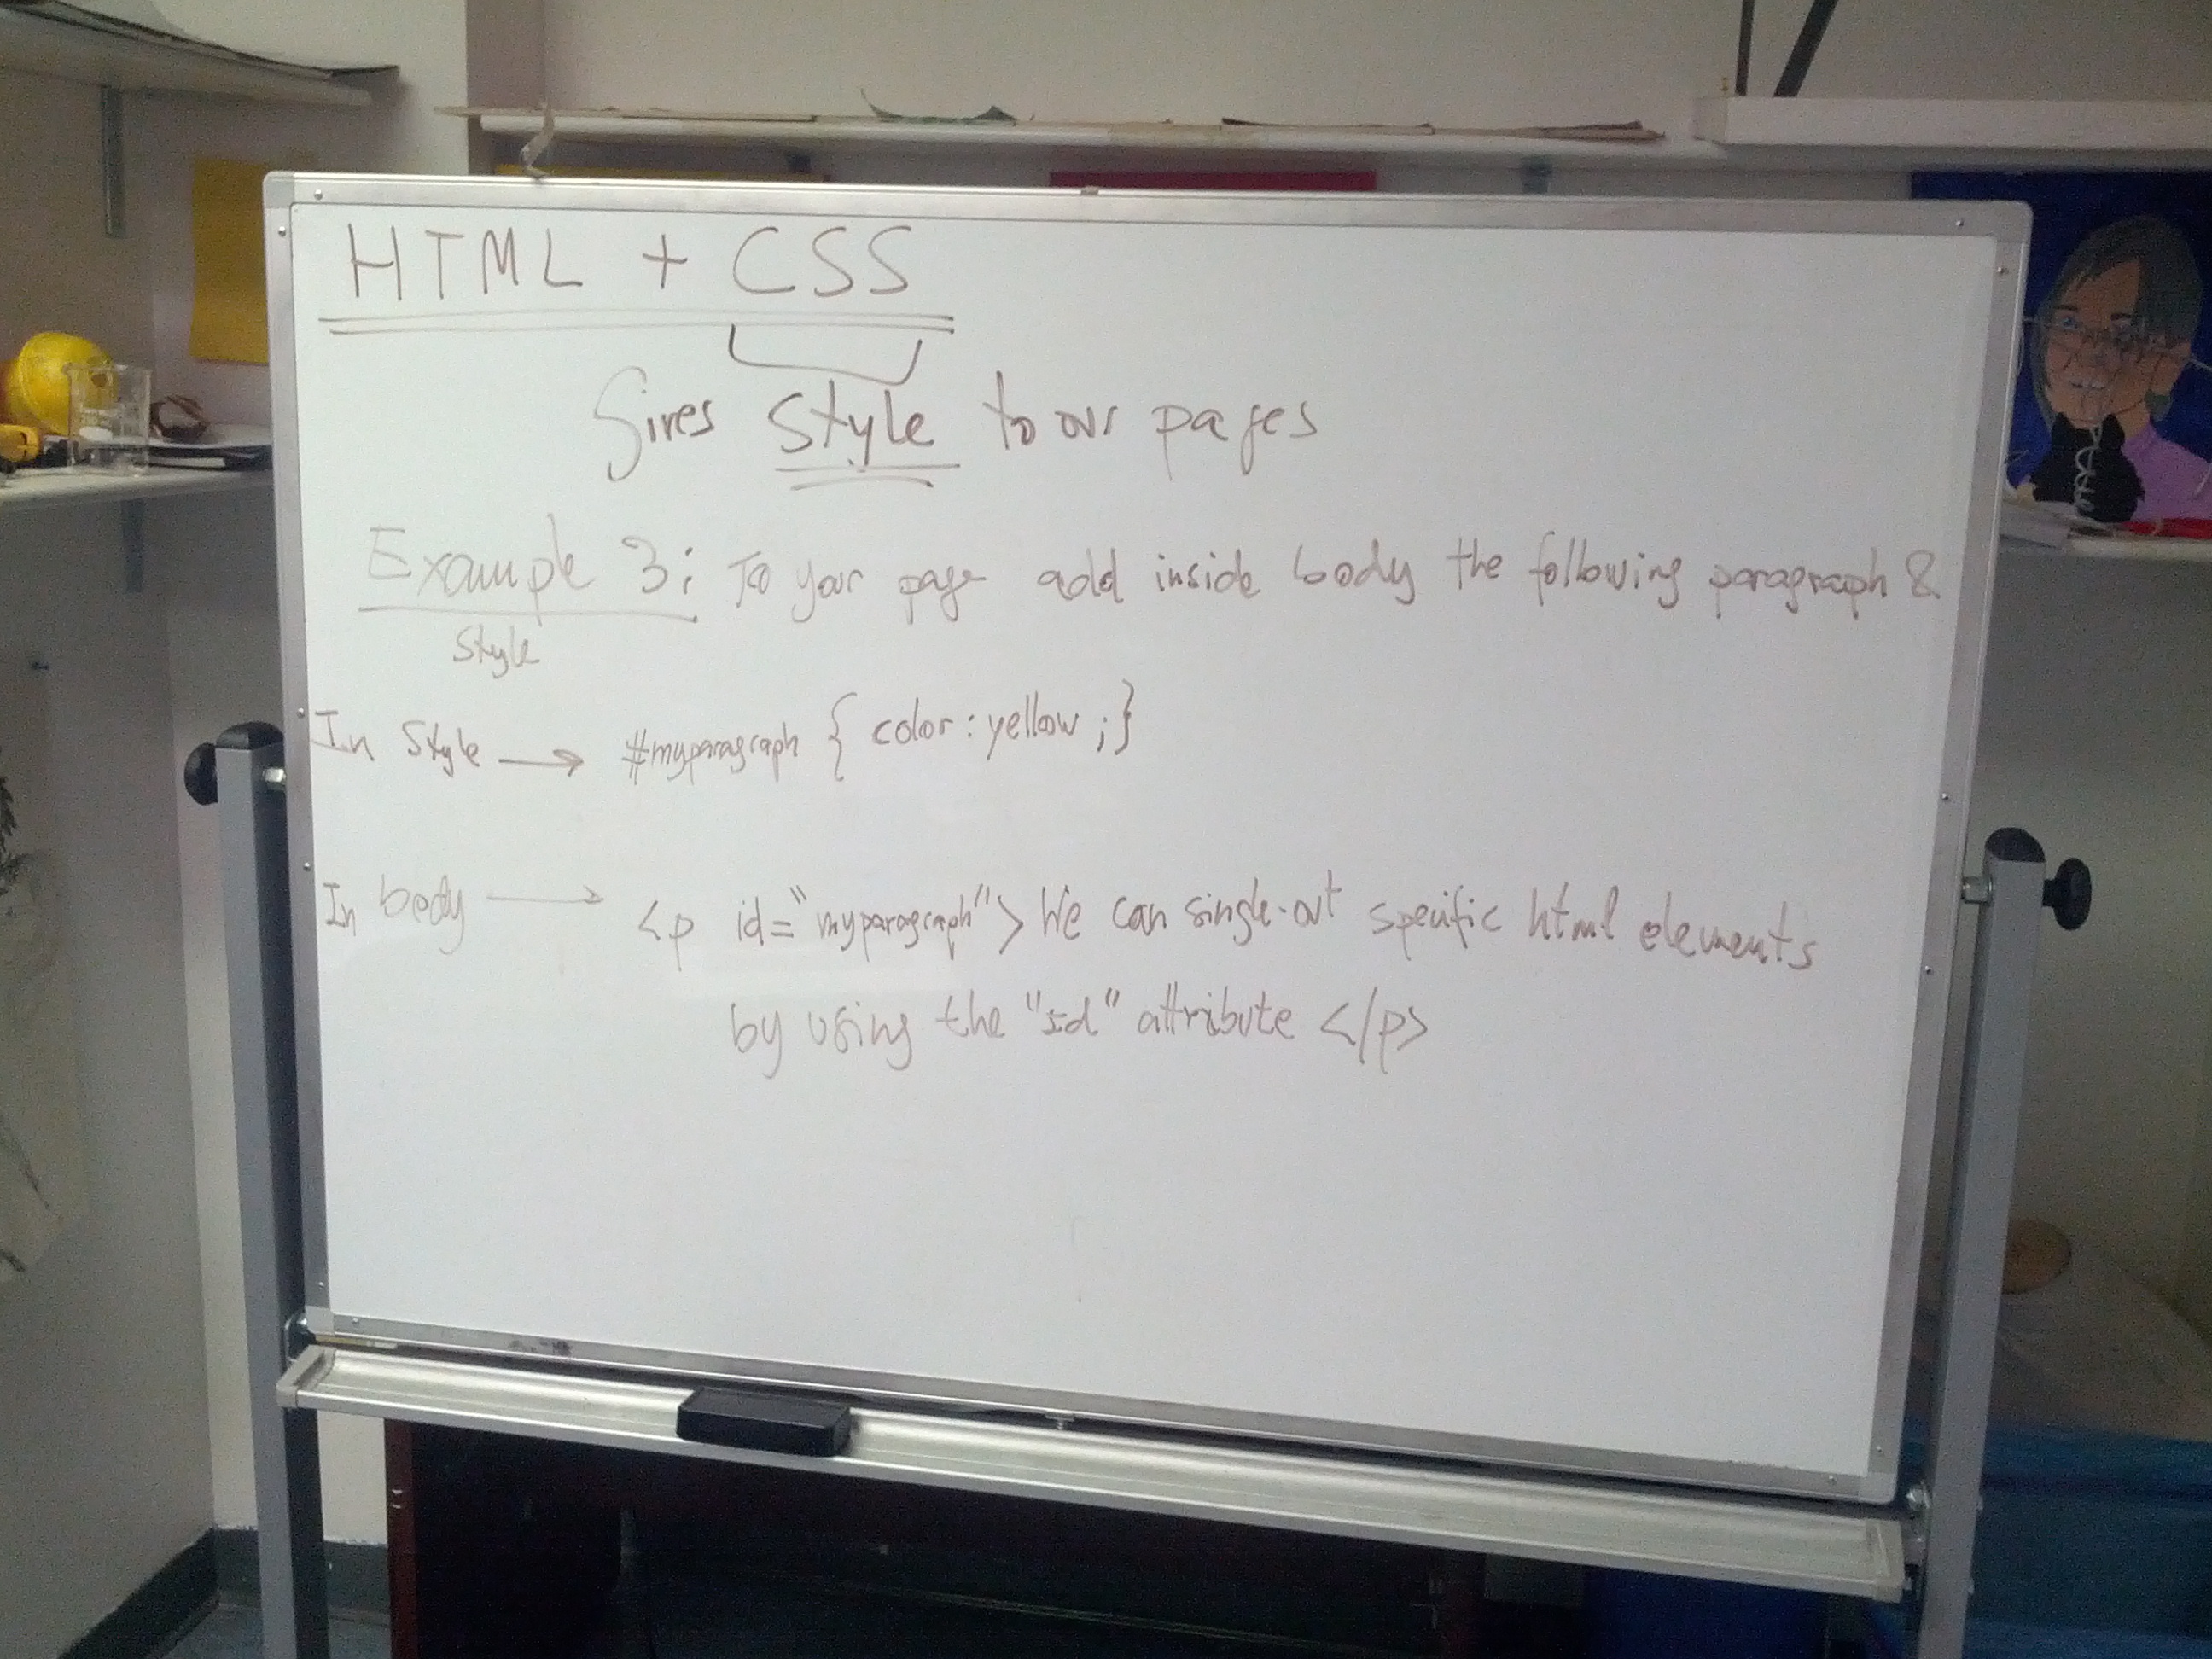 HTML + CSS
Gives Style to our pages
Example 3: To your page add inside body the following paragraph &
Style
In Style → #myparagraph { color: yellow ; }
In body → <p id="myparagraph"> We can single-out specific html elements
by using the "id" attribute </p>